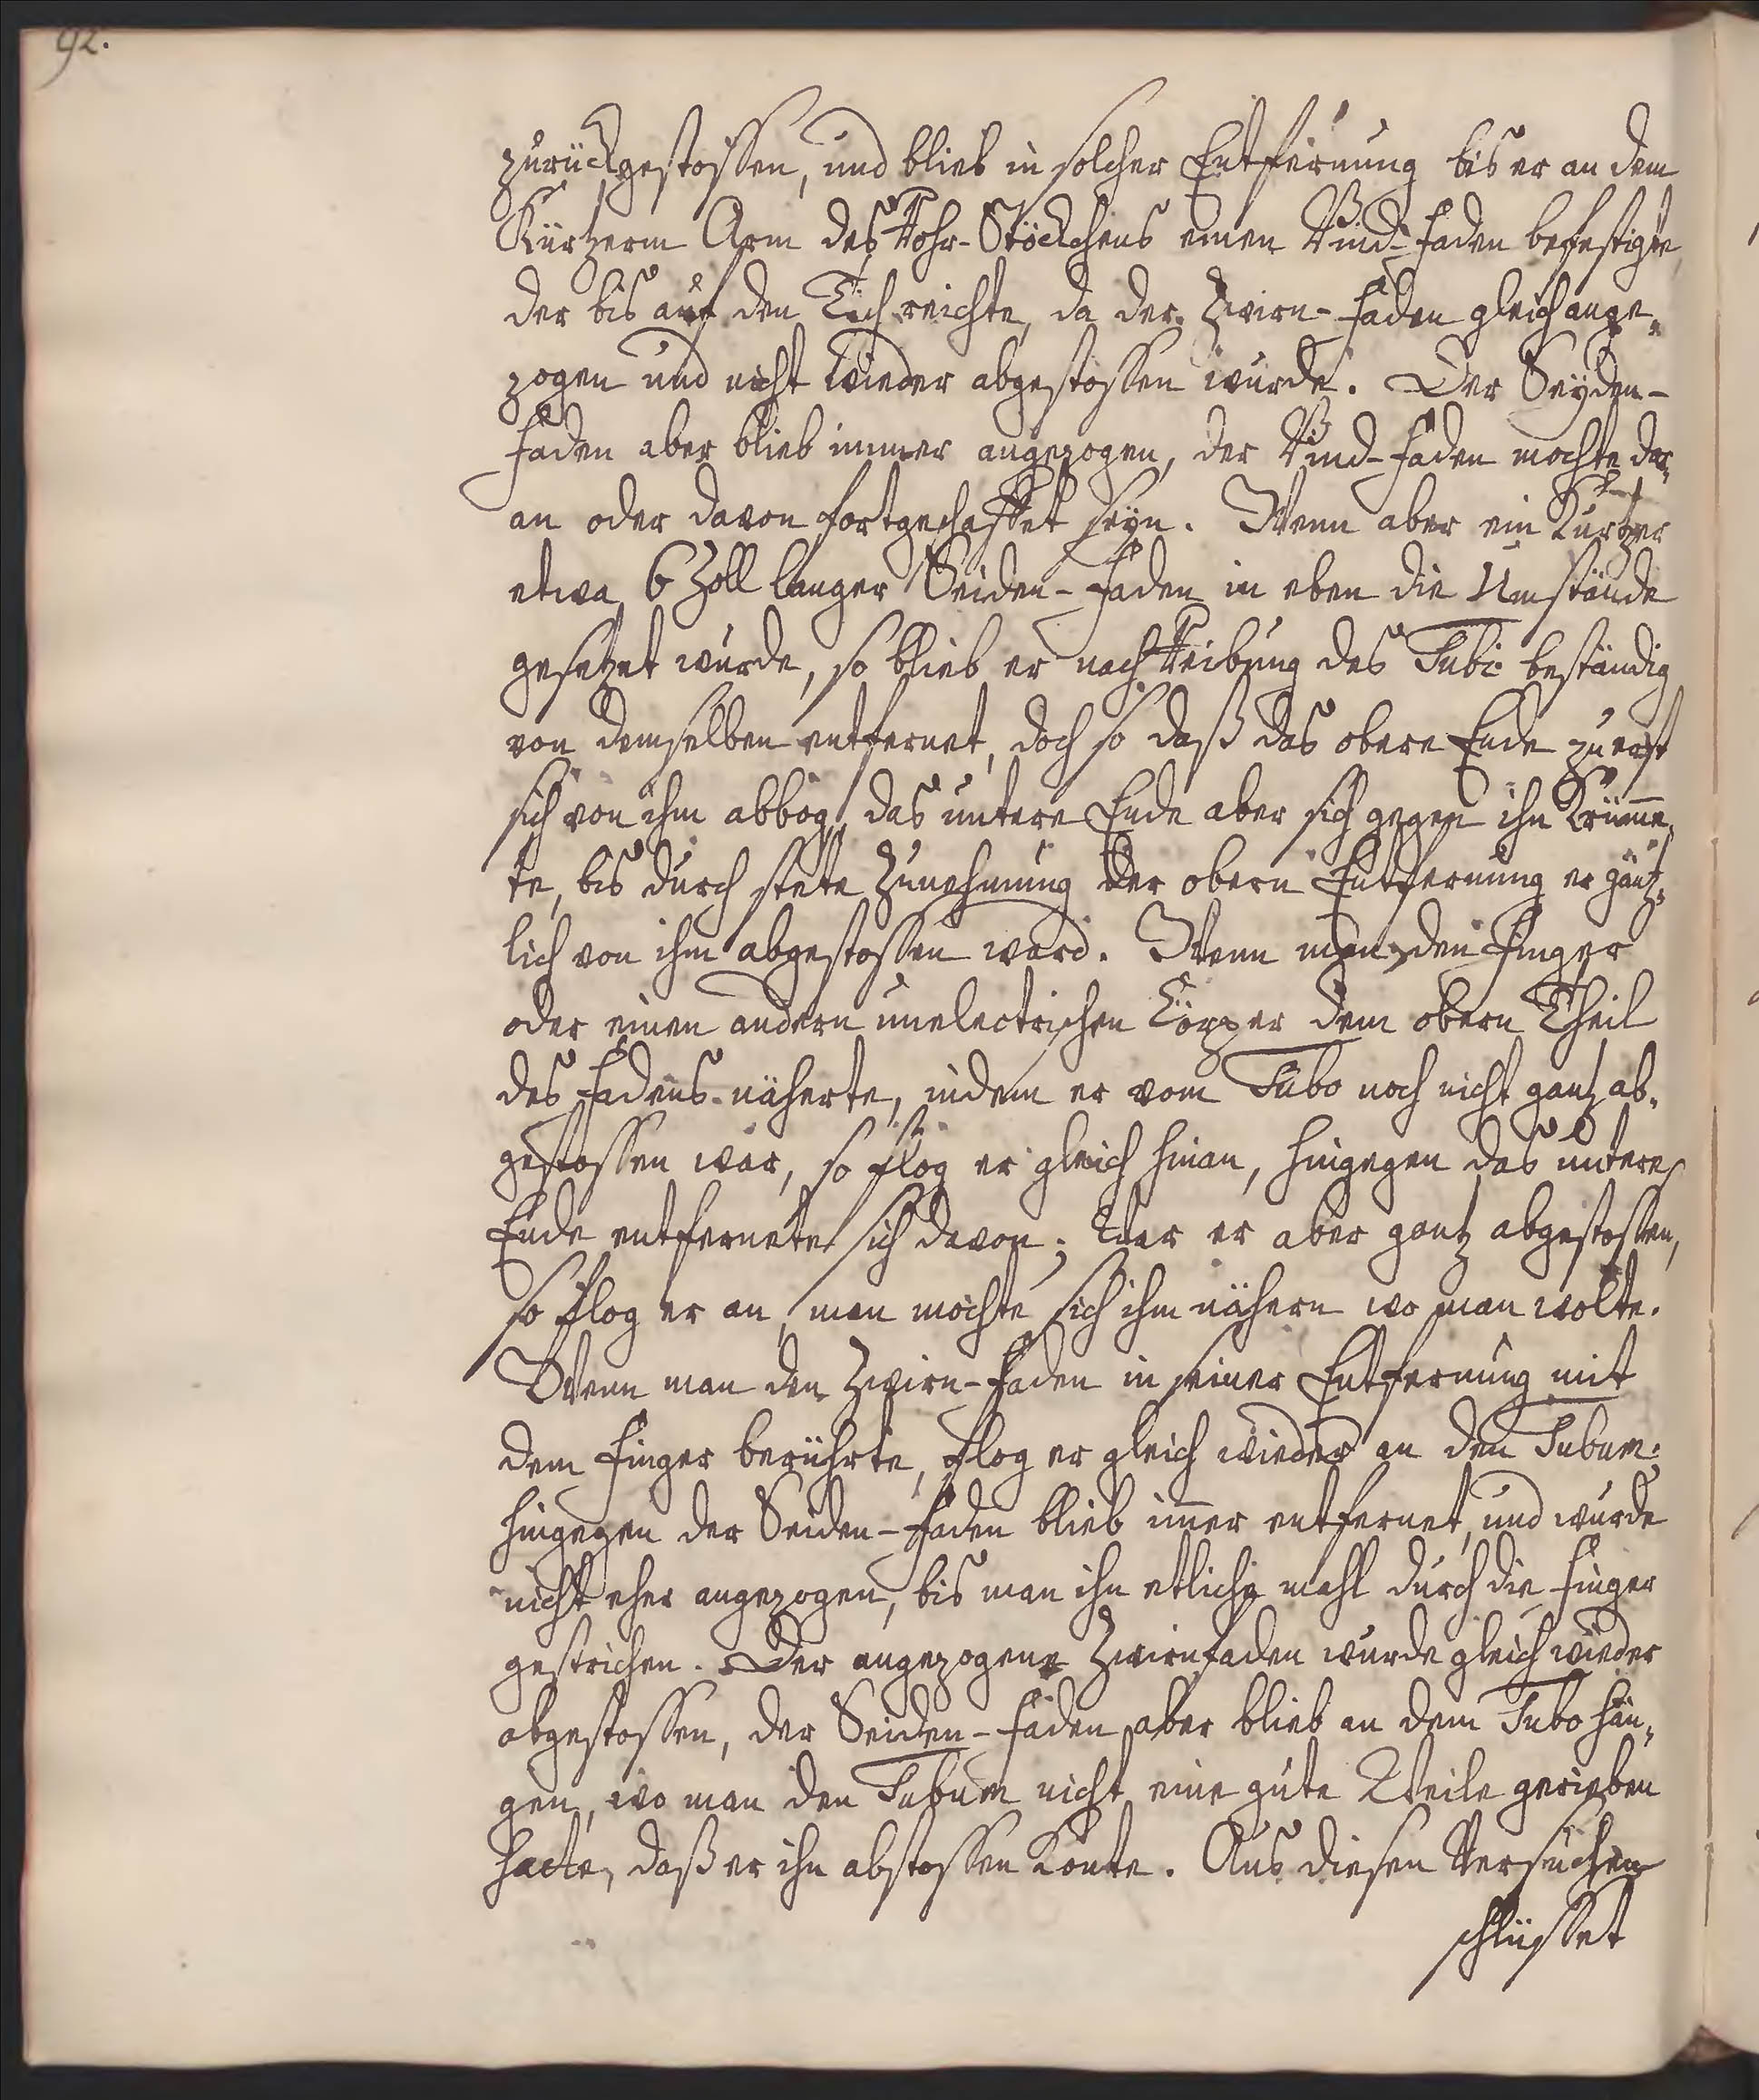 92.
zurückgestossen, und blieb in solcher Entfernung bis er an dem
Kürtzern Arm des Rohr-Stöckchens einen Bind-Faden befestigte,
der bis auf den Tisch reichte, da der Zwirn-Faden gleich ange-
zogen und nicht wieder abgestossen wurde. Der Seyden-
Faden aber blieb immer angezogen, der Bind-Faden mochte dar-
an oder davon fortgeschaffet seyn. Wenn aber ein kurtzer
etwa 6 Zoll langer Seiden-Faden in eben die Umstände
gesetzet wurde, so blieb er nach Reibung des Tubi beständig
von demselben entfernet, doch so daß das obere Ende zu erst
sich von ihm abbog, das untere Ende aber sich gegen ihn krüm̄e-
te, bis durch stete Zunehmung der obern Entfernung er gäntz-
lich von ihm abgestossen ward. Wenn man den Finger
oder einen andern unelectrischen Körper dem obern Theil
des Fadens näherte, indem er vom Tubo noch nicht gantz ab-
gestossen war, so flog er gleich hinan, hingegen das untere
Ende entfernete sich davon; War er aber gantz abgestossen,
so flog er an, man mochte sich ihm nähern wo man wolte.
Wenn man den Zwirn-Faden in seiner Entfernung mit
dem Finger berührte, flog er gleich wieder an den Tubum:
hingegen der Seiden-Faden blieb im̄er entfernet, und wurde
nicht eher angezogen, bis man ihn etliche mahl durch die Finger
gestrichen. Der angezogene Zwirnfaden wurde gleich wieder
abgestossen, der Seiden-Faden aber blieb an dem Tubo hän-
gen, wo man den Tubum nicht eine gute Weile gerieben
hatte, daß er ihn abstossen konte. Aus diesen Versuchen
schlüsset